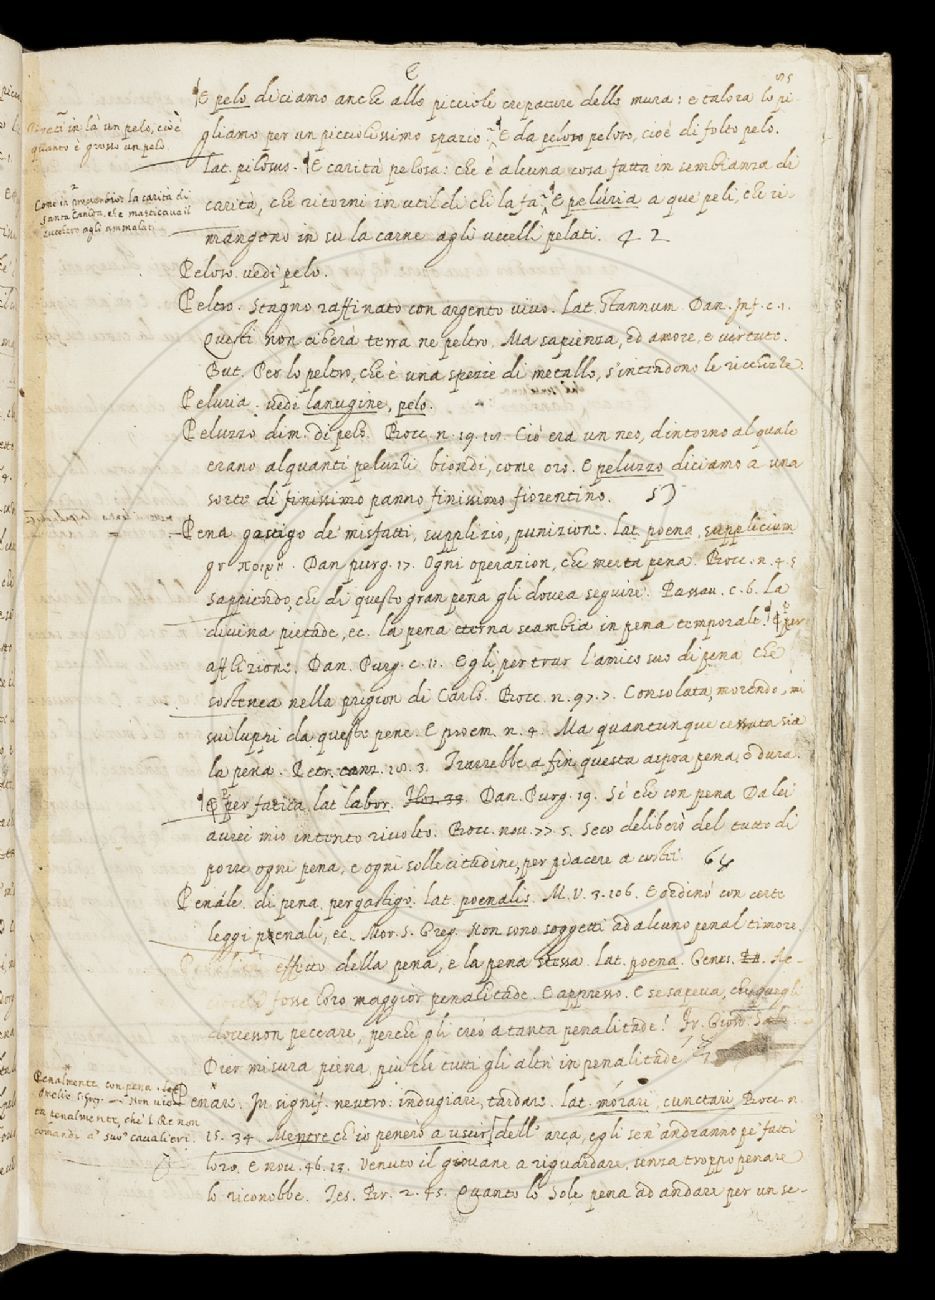 E
E pelo diciamo anche allo picciole crepature dello mura: e talora lo pi-
gliamo per un piccolissimo spazio. E da peloso peloso, cioè di folto pelo.
lat. pilosus. E carità pelosa: che è alcuna cosa fatta in sembianza di
carità, che ritorni in util di chi la fa. E pelúria a que' peli, che ri-
mangono in su la carne agli uccelli pelati. 42
in là un pelo, cioè
quanto è grosso un pelo.
Come in proverbio: la carità di
santa che masticava il
zucchero agli ammalati
Peloso. vedi pelo.
Peltro. Stagno raffinato con argento vivo. Lat. Stannum. Dan. Inf. c. 1.
Questi non ciberà terra ne peltro, Ma sapienza, ed amore, e virtute.
But. Per lo peltro, che è una spezie di metallo, s'intendono le ricchezze.
Peluria. vedi lanugine, pelo.
Peluzzo dim. di pelo. Bocc. n. 19. 18. Ciò era un neo, dintorno al quale
erano alquanti peluzzi biondi, come oro. E peluzzo diciamo a una
sorte di finissimo panno finissimo fiorentino. 57
Pena gastigo de' misfatti, supplizio, punizione. lat. poena, supplicium
gr. ποινη. Dan purg. 17. Ogni operazion, che merta pena. Bocc. n. 4. 5
sappiendo, che di questo gran pena gli dovea seguire. Passav. c. 6. La
divina pietade, ec. la pena eterna scambia in pena temporale. per
afflizione. Dan. Purg. c. 11. Egli per trar l'amico suo di pena che
sostenea nella prigion di Carlo. Bocc. n. 97. 7. Consolata, morendo, mi
sviluppi da queste pene. E proem. n. 4. Ma quantunque cessata sia
la pena. Petr. canz. 18. 3. Trarrebbe a fin questa aspra pena, o dura.
per fatica lat. labor. Dan. Purg. 19. Sì che con pena Da lei
aurei mio intento rivolto. Bocc. nov. 77. 5. Seco deliberò del tutto di
porre ogni pena, e ogni sollecitudine, per piacere a costei. 64
Penále. di pena. per gastigo. lat. poenalis. M. V. 3. 106. E ordinò con certe
leggi penali, ec. Mor. S. Greg. Non sono soggetti ad alcuno penal timore.
effetto della pena, e la pena stessa. Lat. poena. Genes.
fosse loro maggior penalitade. E appresso. E se sapeva, che quegli
dovesson peccare, perchè gli creò a tanta penalitade! Fr. Giord.
Dier misura piena, più che tutti gli altri in penalitade
Penalmente, con pena. lat.
Non vieta
penalmente, che 'l Re non
comandi a' suoi cavalieri.
Penare. In signif. neutro. indugiare, tardare. lat. morari, cunctari. Bocc. n.
15. 34. Mentre ch'io penerò a uscir dell' arca, egli sen' andranno pe' fatti
loro. E nov. 46. 13. Venuto il giovane a riguardare, senza troppo penare
lo riconobbe. Tes. Br. 2. 45. Quanto lo Sole pena ad andare per un se-